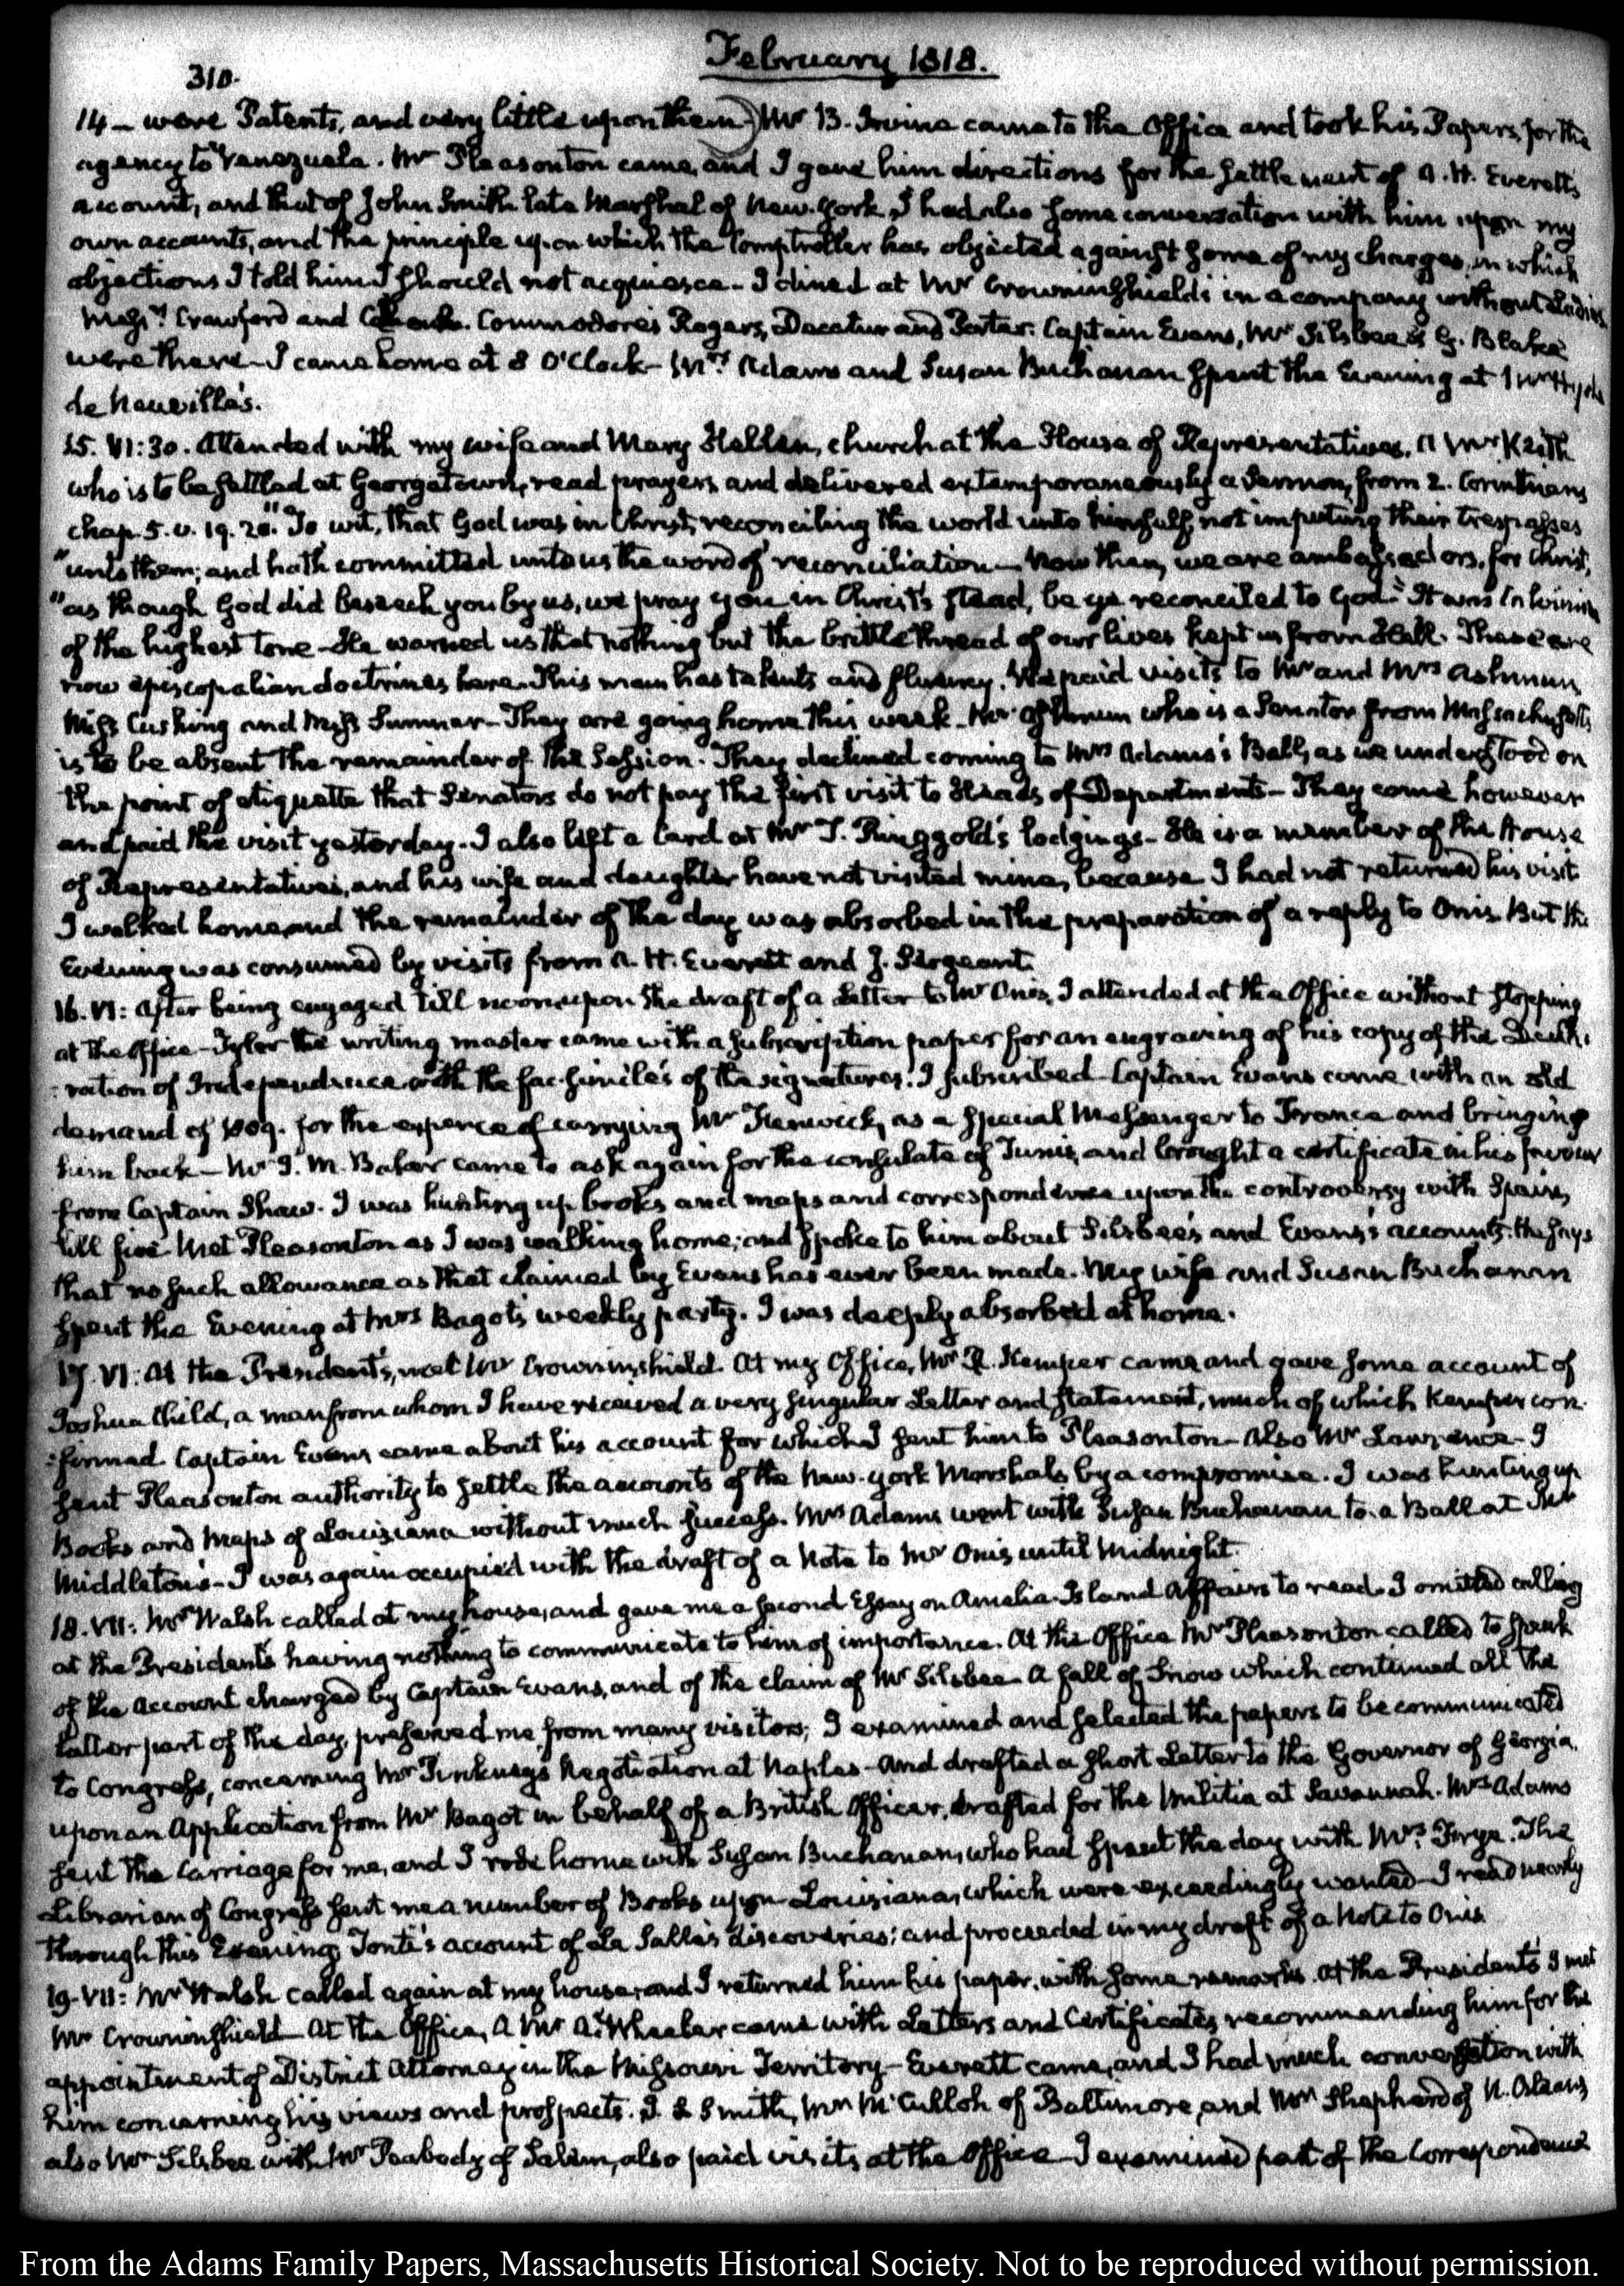 February 1818.
310.
14 — were Patents, and very little upon them. Mr B. Irvine came to the Office and took his Papers, for the
agency to Venezuela. Mr Pleasonton came, and I gave him directions for the settlement of A. H. Everett's
account, and that of John Smith late Marshal of New-York. I had also some conversation with him upon my
own accounts, and the principle upon which the Comptroller has objected against some of my charges, in which
objections I told him I should not acquiesce — I dined at Mr Crowninshield's in a company without Ladies.
Messrs Crawford and Commodores Rogers, Decatur and Porter. Captain Evans, Mr Silsbee & G. Blake
were there — I came home at 8 O'Clock — Mrs Adams and Susan Buchanan spent the Evening at Mrs Hyde
de Neuville's.
15. VI:30. Attended with my wife and Mary Hellen, church at the House of Representatives. A Mr Keith
who is to be settled at Georgetown, read prayers and delivered extemporaneously a Sermon, from 2. Corinthians
chap. 5. v. 19. 20. "To wit, that God was in Christ, reconciling the world unto himself, not imputing their trespasses
"unto them; and hath committed unto us the word of reconciliation — Now then, we are ambassadors, for Christ,
"as though God did beseech you by us, we pray you in Christ's stead, be ye reconciled to God." It was Calvinism
of the highest tone — He warned us that nothing but the brittle thread of our lives kept us from Hell. These are
now episcopalian doctrines here. This man has talents and fluency. We paid visits to Mr and Mrs Ashmun,
Miss Cushing and Miss Sumner — They are going home this week. Mr Ashmun who is a Senator from Massachusetts
is to be absent the remainder of the Session. They declined coming to Mrs Adams's Ball, as we understood on
the point of etiquette that Senators do not pay the first visit to Heads of Departments — They came however
and paid the visit yesterday. I also left a Card at Mr T. Ringgold's lodgings — He is a member of the House
of Representatives, and his wife and daughter have not visited mine, because I had not returned his visit.
I walked home, and the remainder of the day was absorbed in the preparation of a reply to Onis. But the
Evening was consumed by visits from A. H. Everett and J. Sergeant.
16. VI: After being engaged till noon upon the draft of a Letter to Mr Onis, I attended at the Office without stopping
at the office — Tyler the writing master came with a subscription paper for an engraving of his copy of the Decla-
:ration of Independence with the fac-simile's of the signatures. I subscribed — Captain Evans came with an old
demand of 1809. for the expence of carrying Mr Fenwick, as a Special Messenger to France and bringing
him back — Mr J. M. Baker came to ask again for the consulate of Tunis, and brought a certificate in his favour
from Captain Shaw. I was hunting up books and maps and correspondence upon the controversy with Spain,
till five. Met Pleasonton as I was walking home; and spoke to him about Silsbee's and Evans's accounts. He says
that no such allowance as that claimed by Evans has ever been made. My wife and Susan Buchanan
spent the Evening at Mrs Bagot's weekly party. I was deeply absorbed at home.
17. VI: At the President's, met Mr Crowninshield. At my Office, Mr R. Kemper came, and gave some account of
Joshua Child, a man from whom I have received a very singular Letter and statement, much of which Kemper con-
:firmed. Captain Evans came about his account for which I sent him to Pleasonton — Also Mr Lawrence — I
sent Pleasonton authority to settle the accounts of the New-York Marshals by a compromise. I was hunting up
Books and Maps of Louisiana without much success. Mrs Adams went with Susan Buchanan to a Ball at Mr
Middleton's — I was again occupied with the draft of a Note to Mr Onis until Midnight.
18. VII: Mr Walsh called at my house, and gave me a second Essay on Amelia-Island Affairs to read. I omitted calling
at the President's having nothing to communicate to him of importance. At the Office Mr Pleasonton called to speak
of the Account charged by Captain Evans, and of the claim of Mr Silsbee — A fall of Snow which continued all the
latter part of the day, preserved me from many visitors; I examined and selected the papers to be communicated
to Congress, concerning Mr Pinkney's Negotiation at Naples — And drafted a short Letter to the Governor of Georgia,
upon an Application from Mr Bagot in behalf of a British Officer, drafted for the Militia at Savannah. Mrs Adams
sent the Carriage for me, and I rode home with Susan Buchanan, who had spent the day with Mrs Forsyth. The
Librarian of Congress sent me a number of Books upon Louisiana, which were exceedingly wanted — I read nearly
through this Evening Tonti's account of La Salle's discoveries; and proceeded in my draft of a Note to Onis.
19. VII: Mr Walsh called again at my house, and I returned him his paper, with some remarks. At the President's I met
Mr Crowninshield — At the Office, A Mr A. Wheeler came with Letters and Certificates recommending him for the
appointment of District Attorney in the Missouri Territory — Everett came, and I had much conversation with
him concerning his views and prospects. D. & Smith, Mr McCulloh of Baltimore, and Mr Shepherd of N. Orleans
also Mr Silsbee with Mr Peabody of Salem, also paid visits at the Office — I examined part of the Correspondence
From the Adams Family Papers, Massachusetts Historical Society. Not to be reproduced without permission.